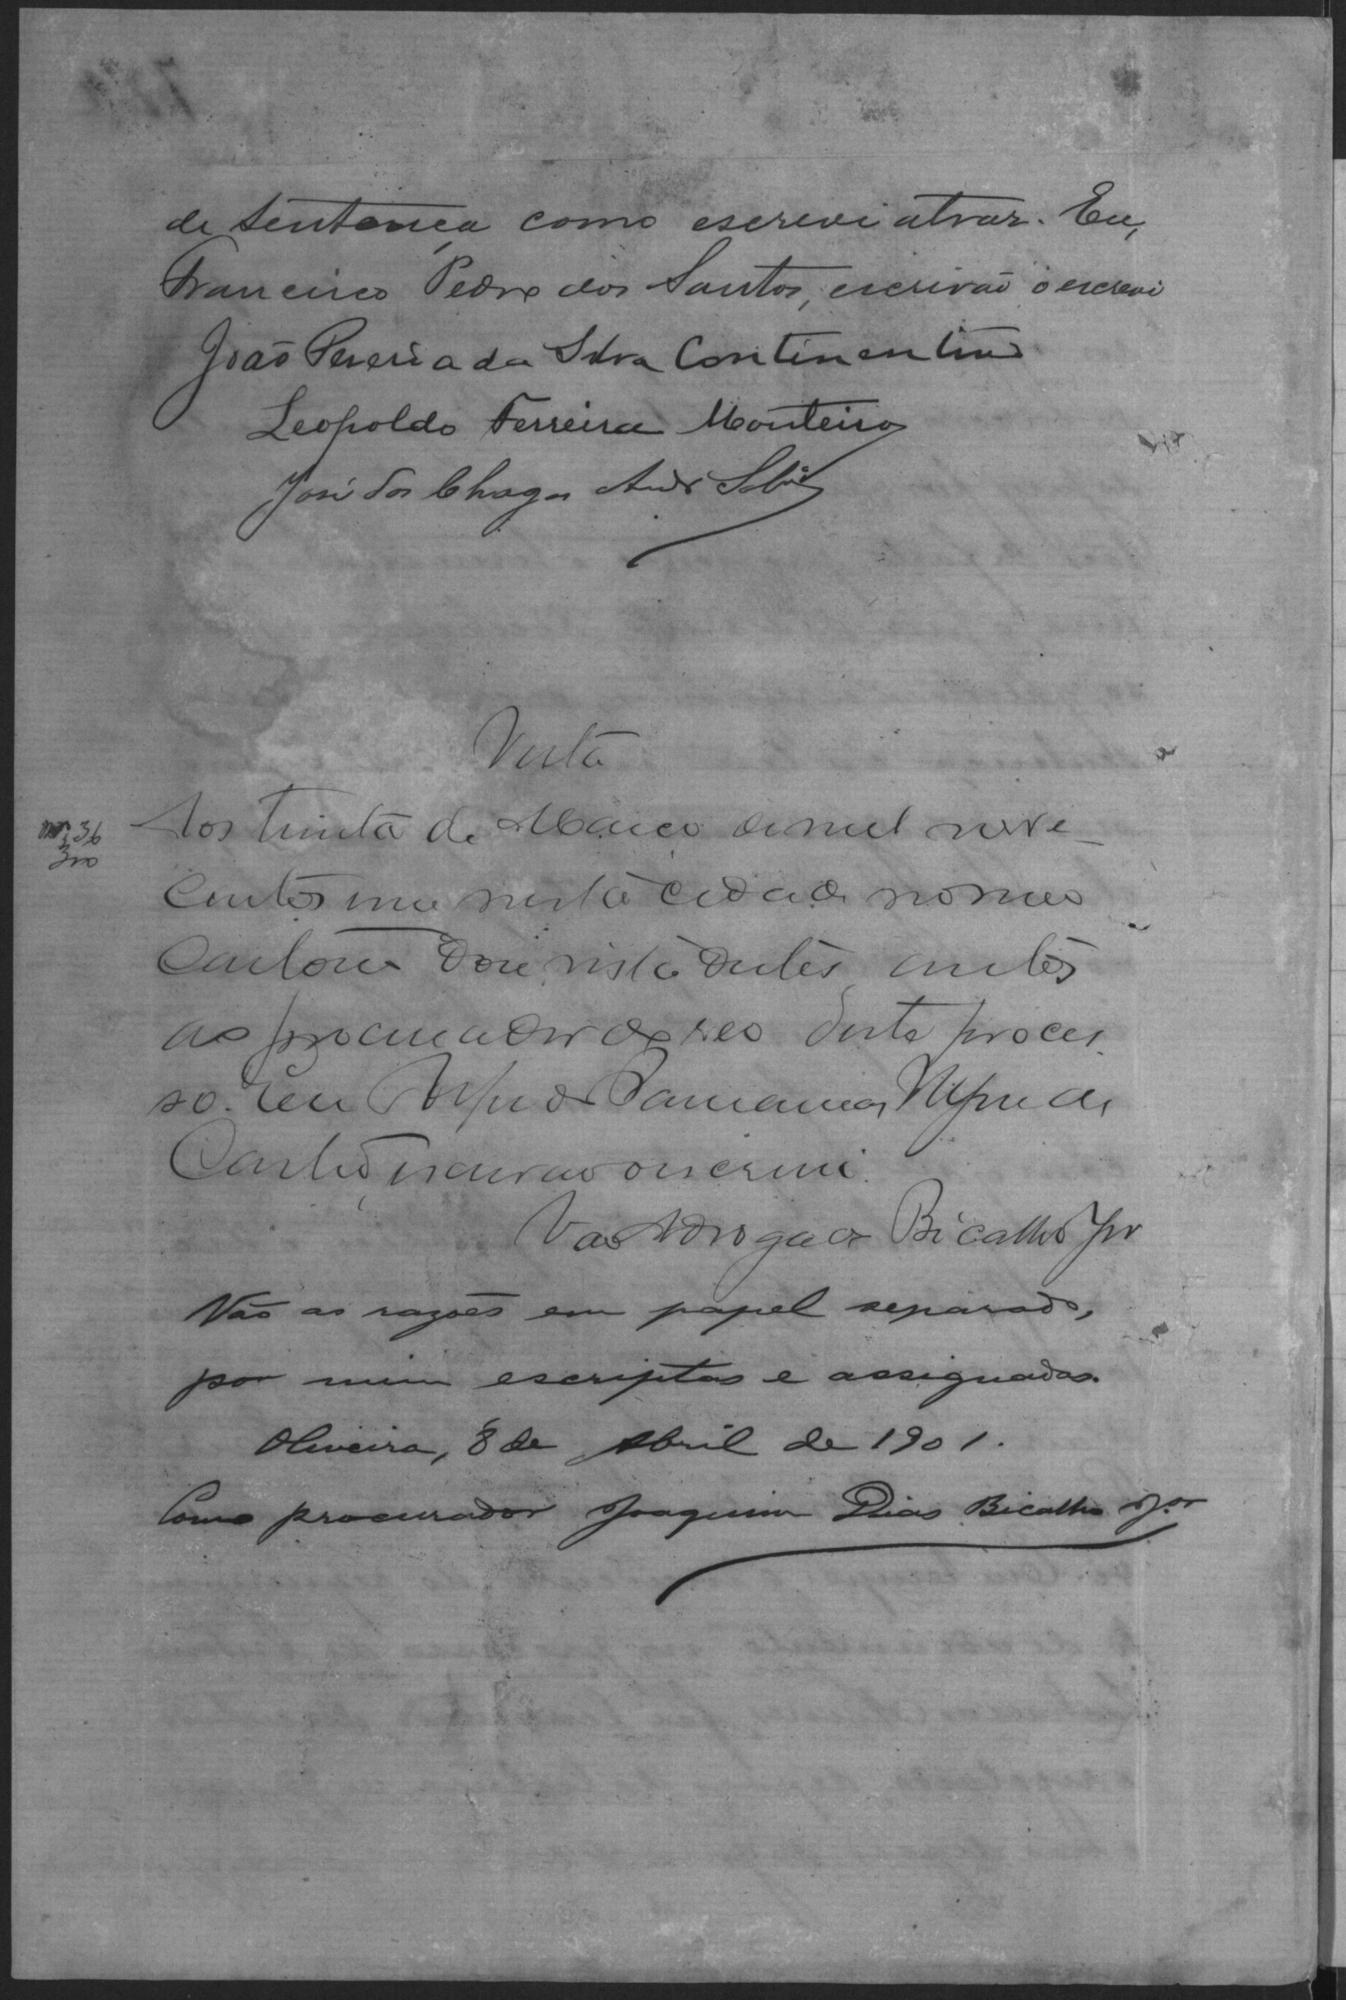 de sentença como escrevi atraz. Eu,
Francisco Pedro dos Santos, escrivão o escrevi
João Pereria da Silva Continentino
Leopoldo Ferreira Monteiro
José das Chagas Andr Sobr
Vista
Aos trinta de Março de mil nove
centos um nesta cidade no meo
Cartorio dou vista destes autos
ao procurador do reo deste proces
so. Eu
Castro, escrivão o escrevi.
Vae Advogado Bicalho Jor
Vão as razões em papel separado,
por mim escriptas e assignadas.
Oliveira, 8 de Abril de 1901.
Como procurador Joaquim Dias Bicalho Jor